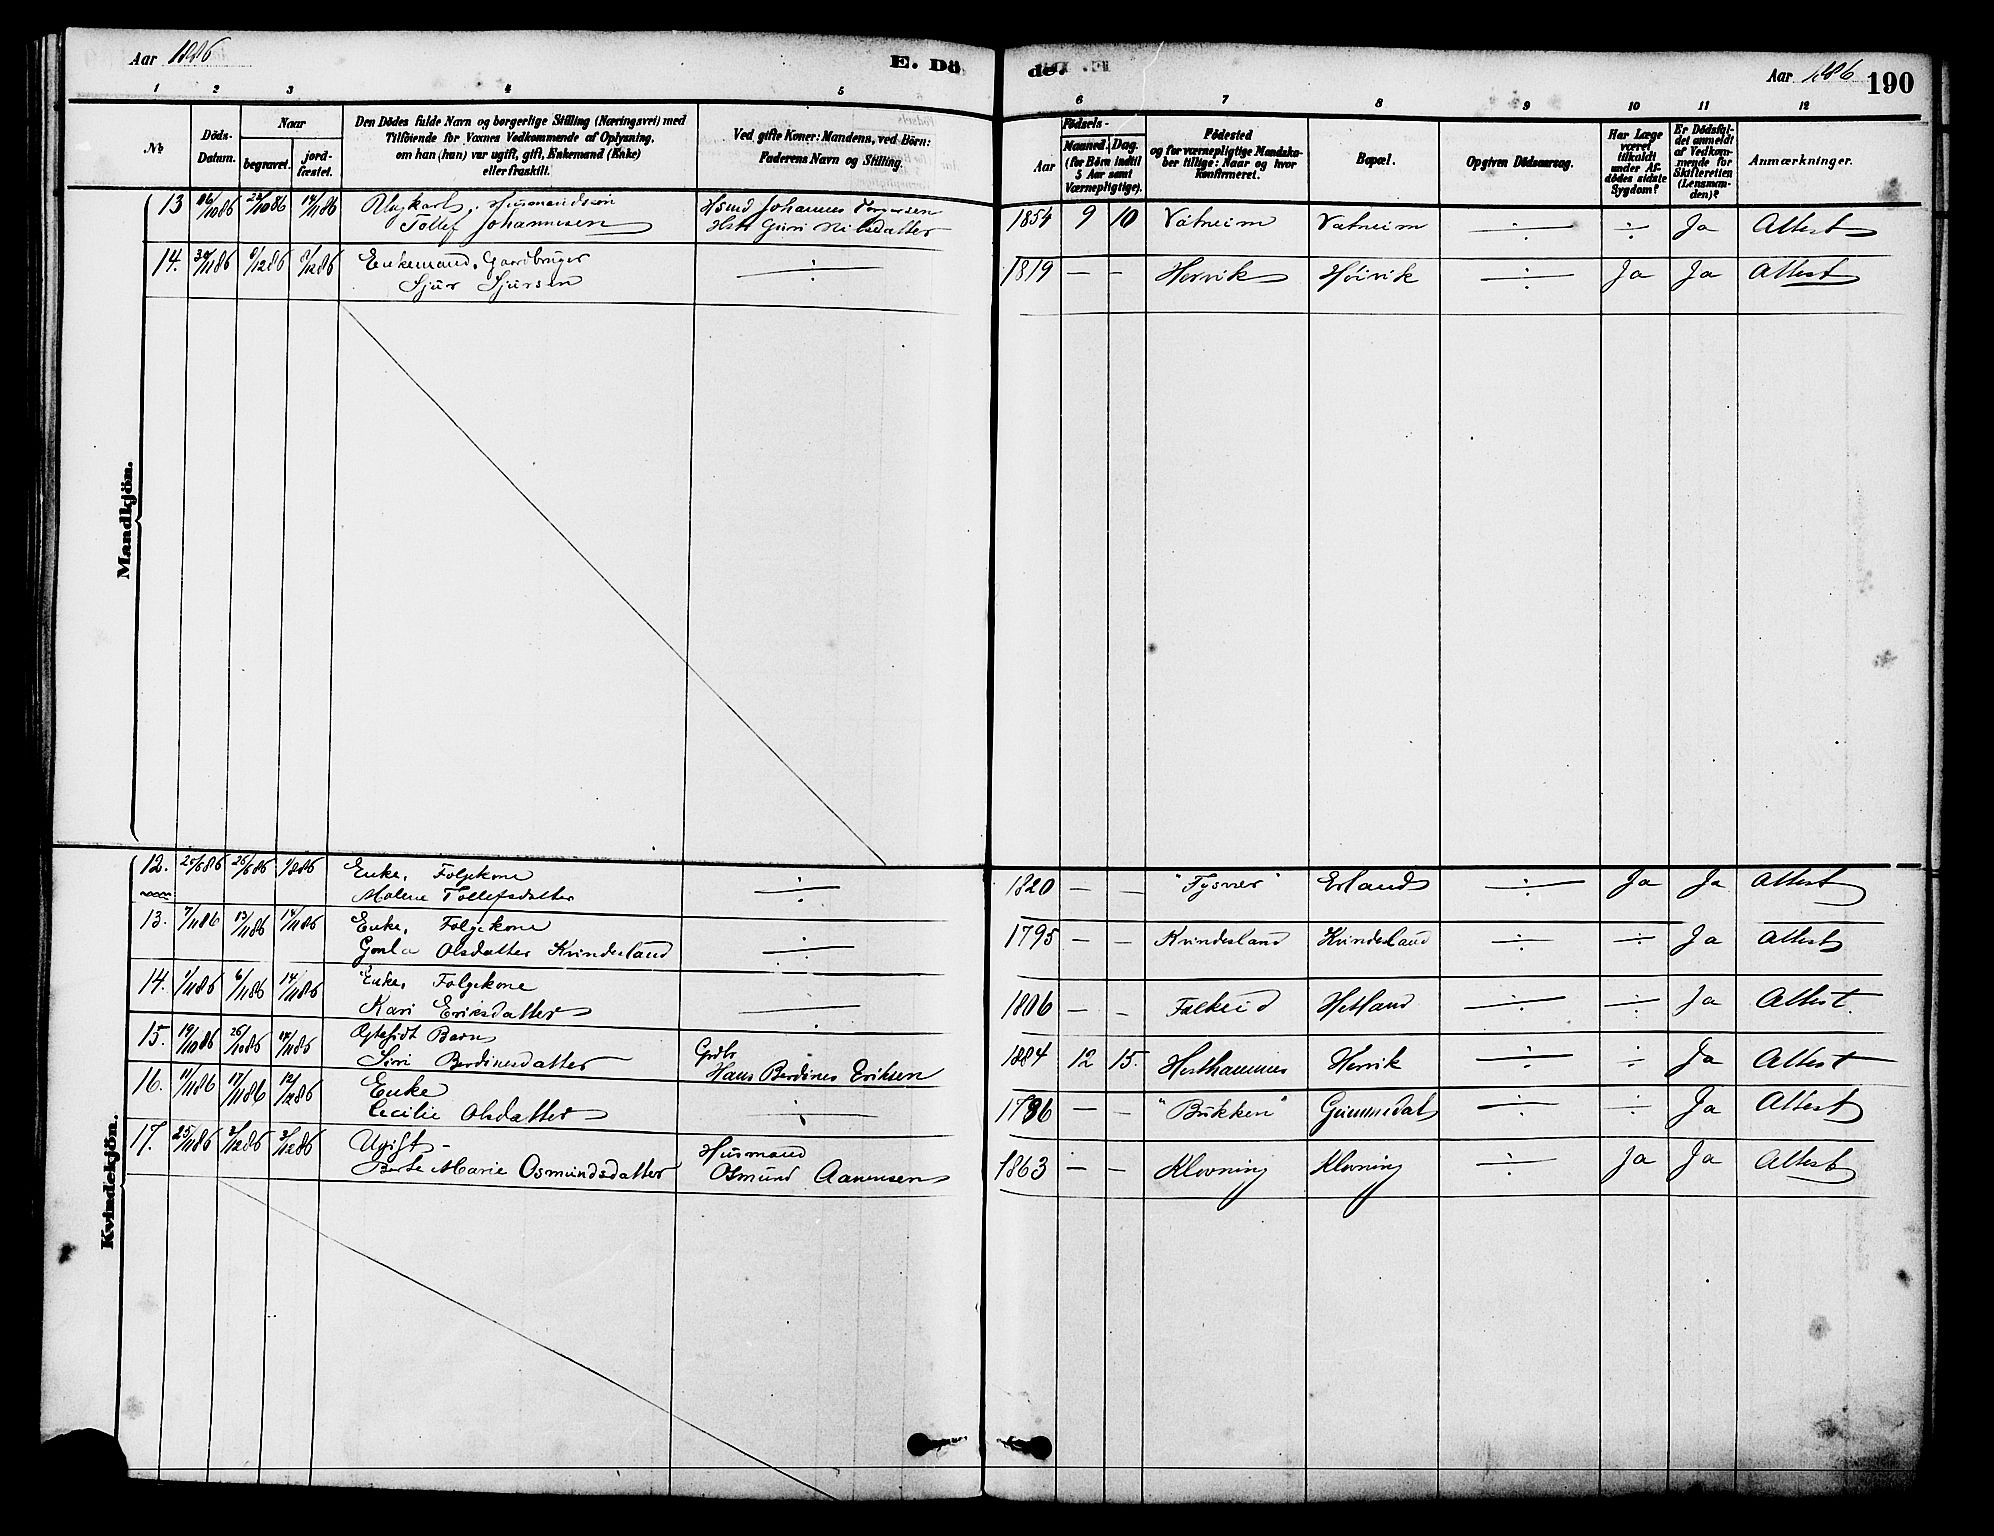 Aar 1886
E. Döde.
Aar 1886 190
1 2 3 4 5 6 7 8 9 10 11 12
No
Döds-Datum.
Naar
begravet.
jord-fæstet.
Den Dödes fulde Navn og borgerlige Stilling (Næringsvei) med
Tilföiende for Voxnes Vedkommende af Oplysning,
om han (hun) var ugift, gift, Enkemand (Enke)
eller fraskilt.
Ved gifte Koner: Mandens, ved Börn:
Faderens Navn og Stilling.
Födsels-
Aar
Maaned. Dag.
(for Börn indtil
5 Aar samt
Værnepligtige).
Födested
og for værnepligtige Mandska-
ber tillige: Naar og hvor
Konfirmeret.
Bopæl.
Opgiven Dödsaarsag.
Har Læge
været
tilkaldt
under Af-
dödes sidste
Sygdom?
Er Dödsfal-
det anmeldt
af Vedkom-
mende for
Skifteretten
(Lensman-
den)?
Anmærkninger.
Mandkjön.
13 16/10 86 14/11 86 Ungkarl, Husmandssön Hsmd Johannes
Tollef Johannesen Hstr Guri Nilsdatter 1854 9 10 Vatneim Vatneim ÷ ÷ Ja Attest
14. 30/11 86 9/12 86 Enkemand, Gaardbruger
Sjur Sjursen ÷ 1819 — — Hervik Höivik ÷ Ja Ja Attest
Kvindekjön.
12. 20/6 86 26/6 86 1/8 86 Enke, Folgekone
Malene Tollefsdatter ÷ 1820 — — "Tysvær" Erland ÷ Ja Ja Attest
13. 7/11 86 13/11 86 14/11 86 Enke, Folgekone
Gonla Olsdatter Kvindesland ÷ 1795 — — Kvindesland Kvindesland ÷ ÷ Ja Attest
14. 1/11 86 6/11 86 14/11 86 Enke, Folgekone
Kari Eriksdatter ÷ 1806 — — Falkeid Hetland ÷ ÷ Ja Attest.
15. 19/10 86 26/10 86 14/11 86 Ægtefödt Barn Grdbr
Siri Berdinesdatter Hans Berdines Eriksen 1884 12 15. Hesthammer Hervik ÷ ÷ Ja Attest
16. 11/11 86 17/11 86 12/12 86 Enke
Cecilie Olsdatter ÷ 1796 — — "Bukken" Grinnedal ÷ ÷ Ja Attest
17. 25/11 86 3/12 86 3/12 86 Ugift - Husmand
Berte Marie Osmundsdatter Osmund Aanensen 1863 — — Klovning Klovning ÷ Ja Ja Attest